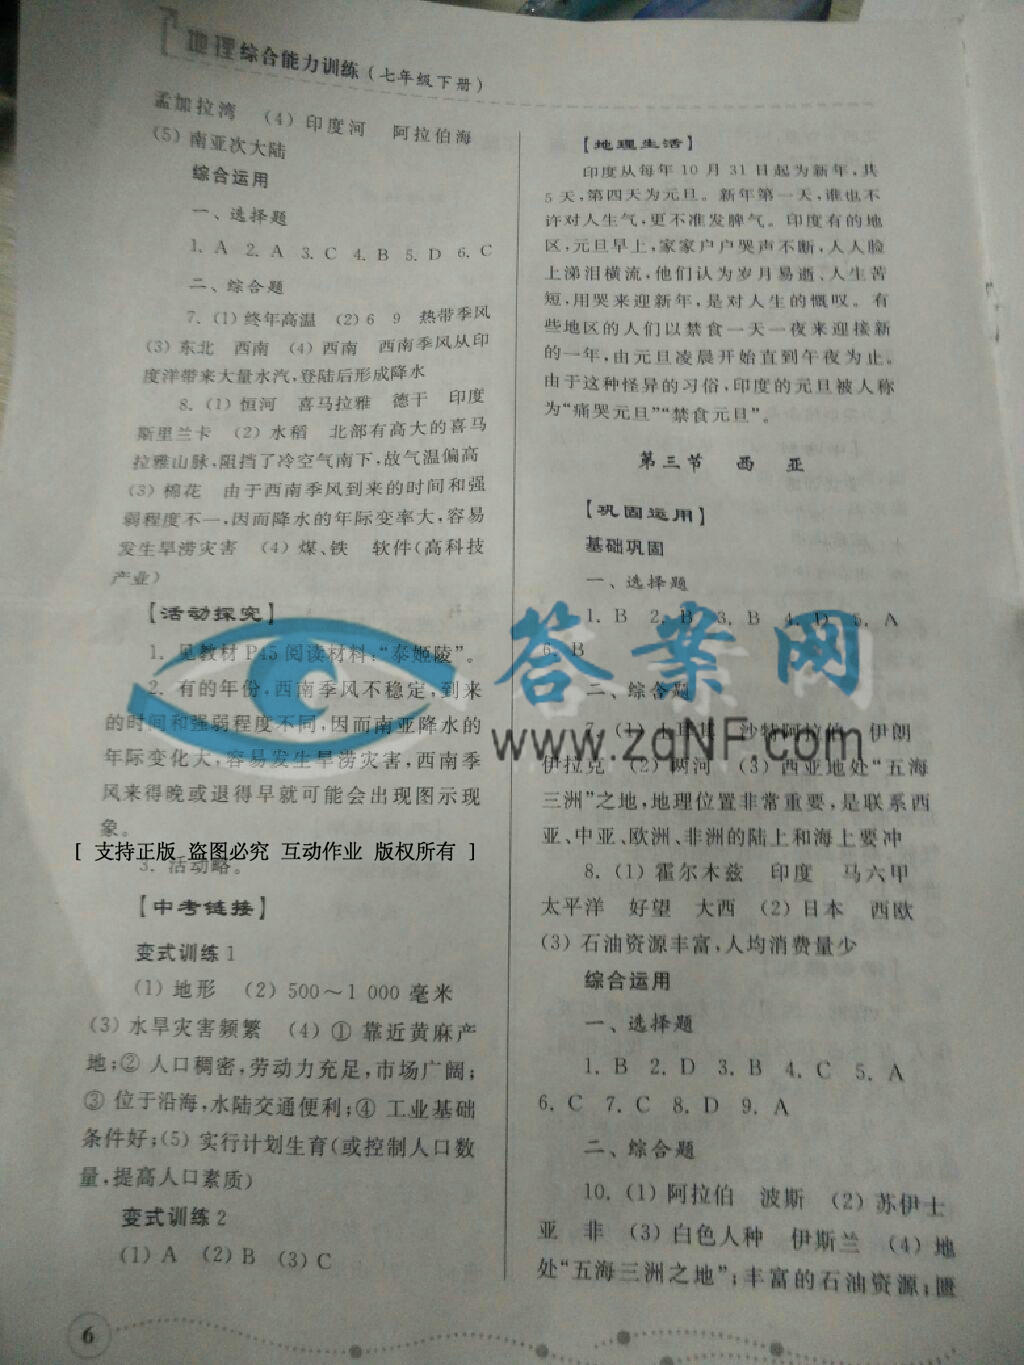 地理综合能力训练(七年级下册)
孟加拉湾 (4)印度河 阿拉伯海
(5)南亚次大陆
综合运用
一、选择题
1. A 2. A 3. C 4. B 5. D 6. C
二、综合题
7. (1)终年高温 (2)6 9 热带季风
(3)东北 西南 (4)西南 西南季风从印
度洋带来大量水汽,登陆后形成降水
8. (1)恒河 喜马拉雅 德干 印度
斯里兰卡 (2)水稻 北部有高大的喜马
拉雅山脉,阻挡了冷空气南下,故气温偏高
(3)棉花 由于西南季风到来的时间和强
弱程度不一,因而降水的年际变率大,容易
发生旱涝灾害 (4)煤、铁 软件(高科技
产业)
【活动探究】
1. 见教材 P45 阅读材料:“泰姬陵”。
2. 有的年份,西南季风不稳定,到来
的时间和强弱程度不同,因而南亚降水的
年际变化大,容易发生旱涝灾害,西南季
风来得晚或退得早就可能会出现图示现
象。
[ 支持正版 盗图必究 互动作业 版权所有 ]
3. 活动略。
【中考链接】
变式训练1
(1)地形 (2)500~1 000 毫米
(3)水旱灾害频繁 (4)① 靠近黄麻产
地;② 人口稠密,劳动力充足,市场广阔;
③ 位于沿海,水陆交通便利;④ 工业基础
条件好;(5)实行计划生育(或控制人口数
量,提高人口素质)
变式训练2
(1)A (2)B (3)C
6
【地理生活】
印度从每年10月31日起为新年,共
5天,第四天为元旦。新年第一天,谁也不
许对人生气,更不准发脾气。印度有的地
区,元旦早上,家家户户哭声不断,人人脸
上涕泪横流,他们认为岁月易逝、人生苦
短,用哭来迎新年,是对人生的慨叹。有
些地区的人们以禁食一天一夜来迎接新
的一年,由元旦凌晨开始直到午夜为止。
由于这种怪异的习俗,印度的元旦被人称
为“痛哭元旦”“禁食元旦”。
第三节 西 亚
【巩固运用】
基础巩固
一、选择题
1. B 2. B 3. B 4. D 5. A
6. B
答案网
二、综合题
7. (1)土耳其 沙特阿拉伯 伊朗
www.zqNF.com
伊拉克 (2)两河 (3)西亚地处“五海
三洲”之地,地理位置非常重要,是联系西
亚、中亚、欧洲、非洲的陆上和海上要冲
8. (1)霍尔木兹 印度 马六甲
太平洋 好望 大西 (2)日本 西欧
(3)石油资源丰富,人均消费量少
综合运用
一、选择题
1. B 2. D 3. B 4. C 5. A
6. C 7. C 8. D 9. A
二、综合题
10. (1)阿拉伯 波斯 (2)苏伊士
亚 非 (3)白色人种 伊斯兰 (4)地
处“五海三洲之地”;丰富的石油资源;匮